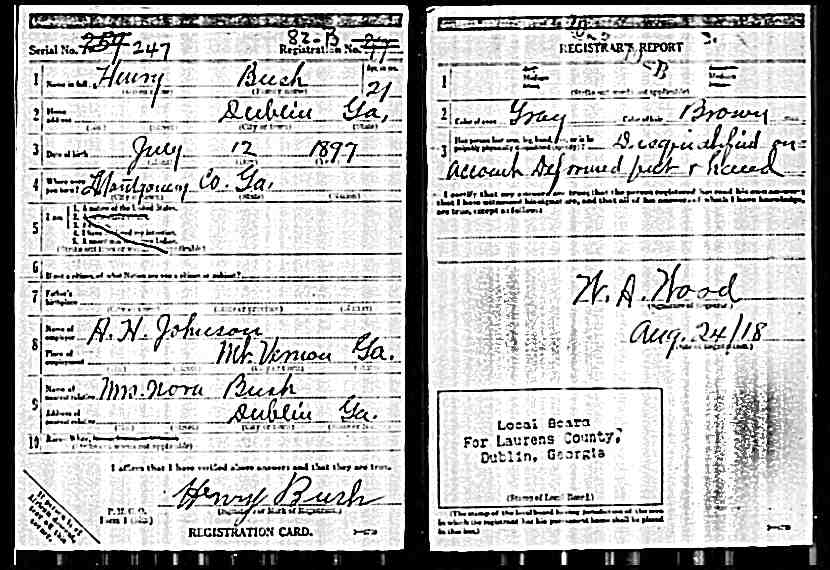 Serial No. 259 247
82-B
Registration No. 77
1 Name in full Henry Bush
Age, in yrs. 21
2 Home address Dublin Ga,
(City or town) (State)
3 Date of birth July 12 1897
4 Where were you born? Montgomery Co. Ga,
5 I am
1. A native of the United States.
6 If not a citizen, of what Nation are you a citizen or subject?
7 Father's birthplace
8 Name of employer A. H. Johnson
Place of employment Mt. Vernon Ga.
9 Name of nearest relative Mrs. Nora Bush
Address of nearest relative Dublin Ga.
10 Race—White,
I affirm that I have verified above answers and that they are true.
Henry Bush
(Signature or Mark of Registrant)
P. M. G. O.
Form 1
REGISTRATION CARD.
REGISTRAR'S REPORT
1
Medium
2 Color of eyes Gray Color of hair Brown
3 Has person lost arm, leg, hand, Disqualified on
account Deformed feet & hand
I certify that my answers are true; that the person registered has read his own answers;
that I have witnessed his signature, and that all of his answers of which I have knowledge,
are true, except as follows:
W. A. Wood
(Signature of Registrar)
Aug. 24/18
(Date of Registration.)
Local Board
For Laurens County,
Dublin, Georgia
(Stamp of Local Board.)
(The stamp of the local board having jurisdiction of the area
in which the registrant has his permanent home shall be placed
in this box.)